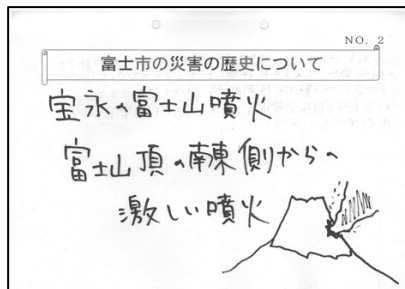 NO. 2
富士市の災害の歴史について
宝永の富士山噴火
富士山頂の南東側からの
激しい噴火